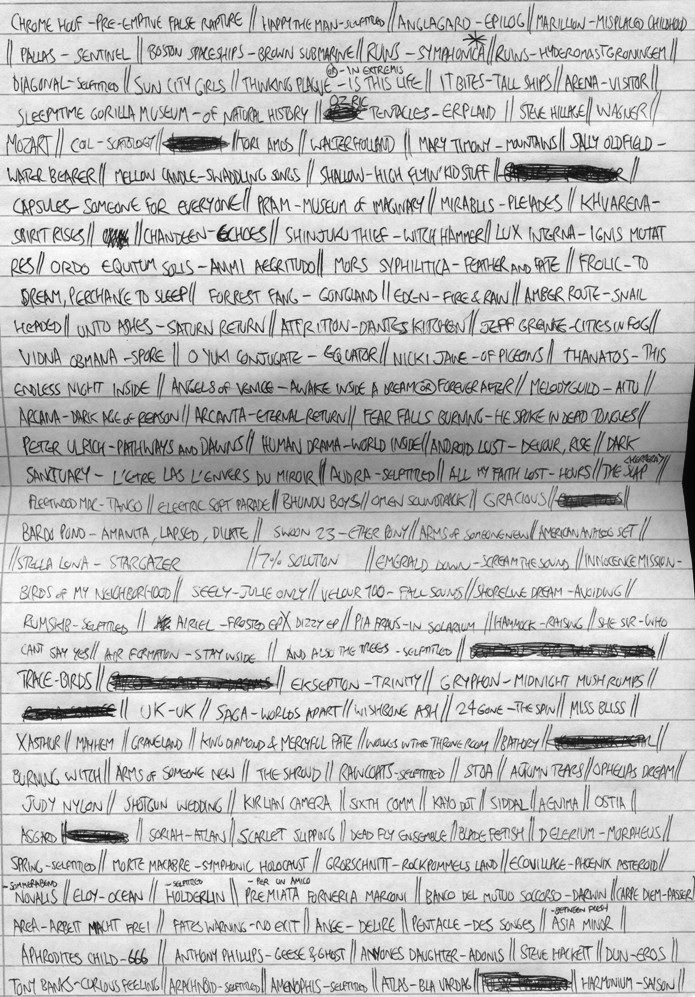 CHROME HOOF - PRE-EMPTIVE FALSE RAPTURE // HAPPY THE MAN - SELFTITLED // ANGLAGARD - EPILOG // MARILLION - MISPLACED CHILDHOD
// PALLAS - SENTINEL // BOSTON SPACESHIPS - BROWN SUBMARINE // RUINS - SYMPHONICA* // RUINS - HYDEROMASTGRONINGEM //
DIAGONAL - SELFTITLED // SUN CITY GIRLS // THINKING PLAGUE - IS THIS LIFE OR - IN EXTREMIS // IT BITES - TALL SHIPS // ARENA - VISITOR //
SLEEPYTIME GORILLA MUSEUM - OF NATURAL HISTORY // OZRIC TENTACLES - ERPLAND // STEVE HILLAGE // WAGNER //
MOZART // COIL - SCATOLOGY // // TORI AMOS // WALTER HOLLAND // MARY TIMONY - MOUNTAINS // SALLY OLDFIELD -
WATER BEARER // MELLOW CANDLE - SWADDLING SONGS // SHALLOW - HIGH FLYIN' KID STUFF //
CAPSULES - SOMEONE FOR EVERYONE // PRAM - MUSEUM OF IMAGINARY // MIRABILIS - PLEIADES // KHVARENA -
SPIRIT RISES // // CHANDEEN - ECHOES // SHINJUKU THIEF - WITCH HAMMER // LUX INTERNA - IGNIS MUTAT
RES // ORDO EQUITUM SOLIS - ANIMI AEGRITUDO // MORS SYPHILITICA - FEATHER AND FATE // FROLIC - TO
DREAM, PERCHANCE TO SLEEP // FORREST FANG - GONGLAND // EDEN - FIRE & RAIN // AMBER ROUTE - SNAIL
HEADED // UNTO ASHES - SATURN RETURN // ATTRITION - DANTES KITCHEN // JEFF GREINKE - CITIES IN FOG //
VIDNA OBMANA - SPORE // O YUKI CONJUGATE - EQUATOR // NICKI JAINE - OF PIGEONS // THANATOS - THIS
ENDLESS NIGHT INSIDE // ANGELS OF VENICE - AWAKE INSIDE A DREAM (OR) FOREVER AFTER // MELODYGUILD - AITU //
ARCANA - DARK AGE OF REASON // ARCANTA - ETERNAL RETURN // FEAR FALLS BURNING - HE SPOKE IN DEAD TONGUES //
PETER ULRICH - PATHWAYS AND DAWNS // HUMAN DRAMA - WORLD INSIDE // ANDROID LUST - DEVOUR, RISE // DARK
SANCTUARY - L'ETRE LAS L'ENVERS DU MIROIR // AUDRA - SELFTITLED // ALL MY FAITH LOST - HOURS // THE SLAP
FLEETWOOD MAC - TANGO // ELECTRIC SOFT PARADE // BHUNDU BOYS // OMEN SOUNDTRACK // GRACIOUS //
BARDO POND - AMANITA, LAPSED, DILATE // SWOON 23 - ETHER PONY // ARMS OF SOMEONE NEW // AMERICAN ANALOG SET //
// STELLA LUNA - STARGAZER // 7% SOLUTION // EMERALD DOWN - SCREAM THE SOUND // INNOCENCE MISSION -
BIRDS OF MY NEIGHBORHOOD // SEELY - JULIE ONLY // VELOUR 100 - FALL SOUNDS // SHORELINE DREAM - AVOIDING //
RUMSKIB - SELFTITLED // AIRIEL - FROSTED EP X DIZZY EP // PIA FRAUS - IN SOLARIUM // HAMMOCK - RAISING // SHE SIR - WHO
CANT SAY YES // AIR FORMATION - STAY INSIDE // AND ALSO THE TREES - SELFTITLED //
TRACE - BIRDS // // EKSEPTION - TRINITY // GRYPHON - MIDNIGHT MUSHRUMPS //
// UK - UK // SAGA - WORLDS APART // WISHBONE ASH // 24 GONE - THE SPIN // MISS BLISS //
XASTHUR // MAYHEM // GRAVELAND // KING DIAMOND & MERCYFUL FATE // WOLVES IN THE THRONE ROOM // BATHORY //
BURNING WITCH // ARMS OF SOMEONE NEW // THE SHROUD // RAINCOATS - SELFTITLED // STOA // AUTUMN TEARS // OPHELIAS DREAM //
JUDY NYLON // SHOTGUN WEDDING // KIRLIAN CAMERA // SIXTH COMM // KAYO DOT // SIDDAL // AENIMA // OSTIA //
ASGARD // // SORIAH - ATLAN // SCARLET SLIPPING // DEAD FLY ENSEMBLE // BLADE FETISH // DELERIUM - MORPHEUS //
SPRING - SELFTITLED // MORTE MACABRE - SYMPHONIC HOLOCAUST // GROBSCHNITT - ROCKPOMMELS LAND // ECOVILLAGE - PHOENIX ASTEROID //
NOVALIS - SOMMERABEND // ELOY - OCEAN // HOLDERLIN - SELFTITLED // PREMIATA FORNERIA MARCONI - PER UN AMICO // BANCO DEL MUTUO SOCCORSO - DARWIN // CARPE DIEM - PASSER
AREA - ARBEIT MACHT FREI // FATES WARNING - NO EXIT // ANGE - DELIRE // PENTACLE - DES SONGES // ASIA MINOR - BETWEEN FLESH //
APHRODITES CHILD - 666 // ANTHONY PHILLIPS - GEESE & GHOST // ANYONES DAUGHTER - ADONIS // STEVE HACKETT // DUN - EROS //
TONY BANKS - CURIOUS FEELING // ARACHNOID - SELFTITLED // AMENOPHIS - SELFTITLED // ATLAS - BLA VARDAG // // HARMONIUM - SAISON //